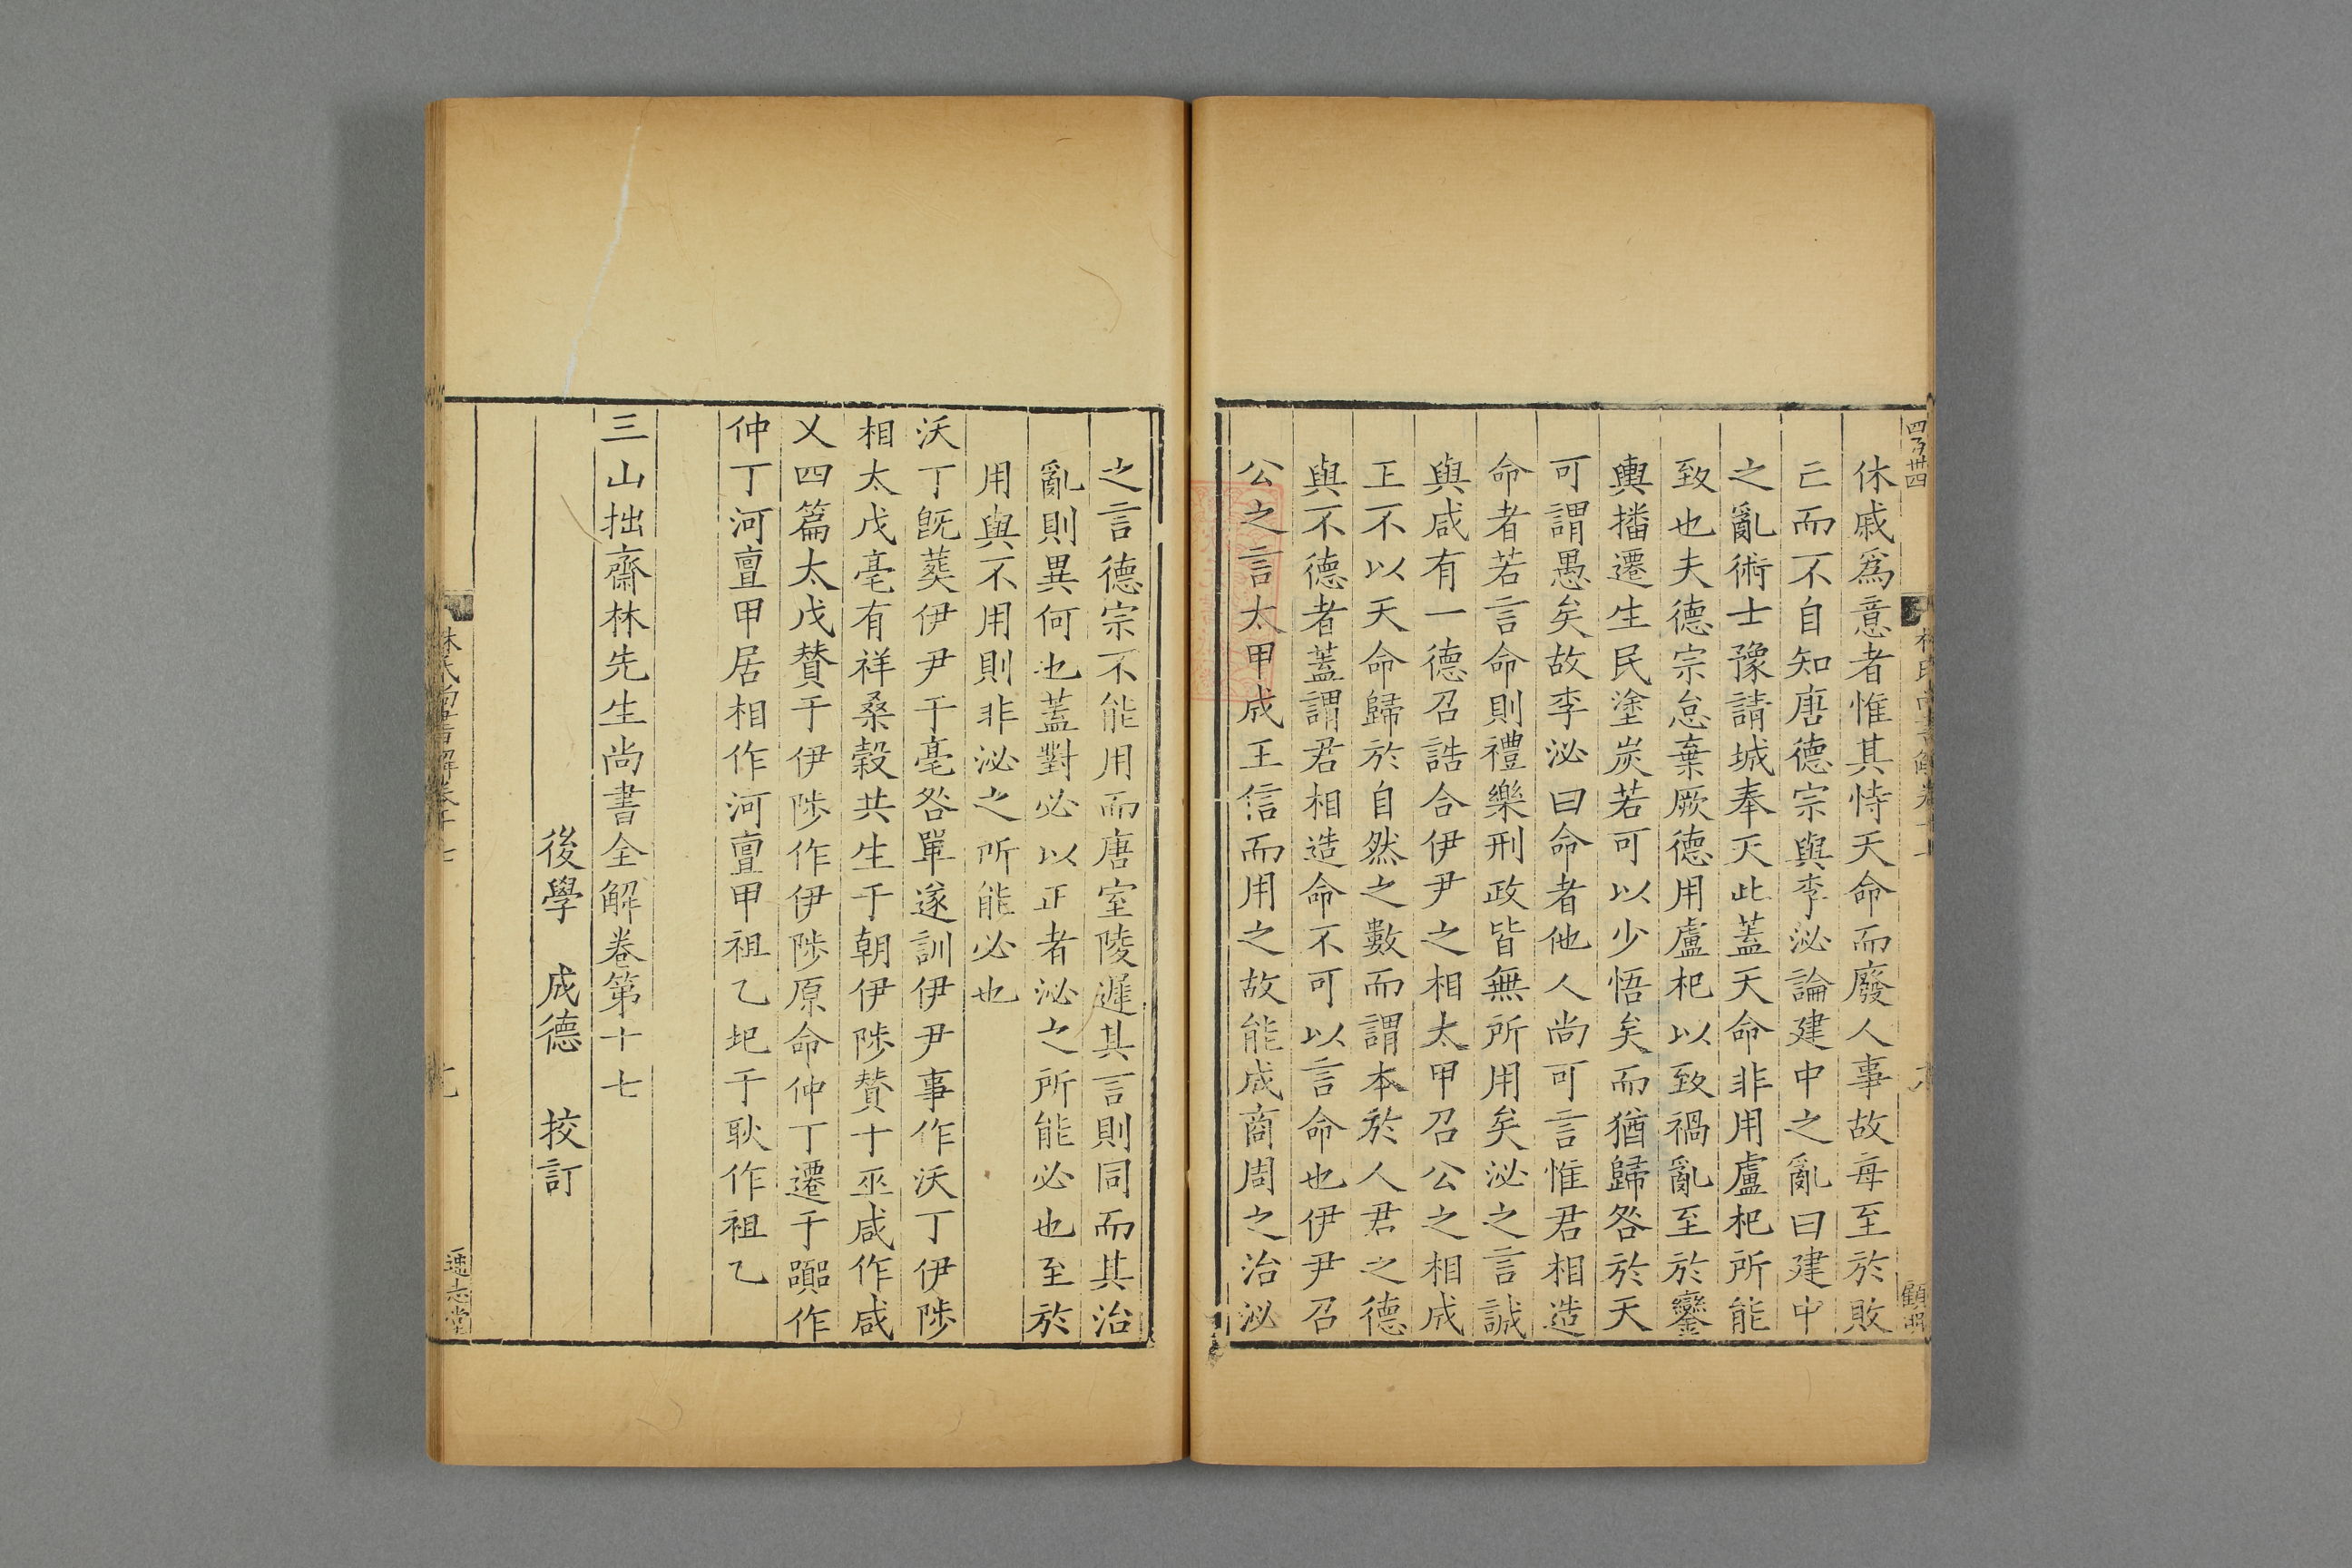 休戚爲意者惟其恃天命而廢人事故每至於敗
亡而不自知唐德宗與李泌論建中之亂曰建中
之亂術士豫請城奉天此蓋天命非用盧杞所能
致也夫德宗怠棄厥德用盧杞以致禍亂至於鑾
輿播遷生民塗炭若可以少悟矣而猶歸咎於天
可謂愚矣故李泌曰命者他人尚可言惟君相造
命者若言命則禮樂刑政皆無所用矣泌之言誠
與咸有一德召誥合伊尹之相太甲召公之相成
王不以天命歸於自然之數而謂本於人君之德
與不德者蓋謂君相造命不可以言命也伊尹召
公之言太甲成王信而用之故能成商周之治泌
之言德宗不能用而唐室陵遲其言則同而其治
亂則異何也蓋對必以正者泌之所能必也至於
用與不用則非泌之所能必也
沃丁旣葬伊尹于亳咎單遂訓伊尹事作沃丁伊陟
相太戊亳有祥桑榖共生于朝伊陟贊于巫咸作咸
乂四篇太戊贊于伊陟作伊陟原命仲丁遷于囂作
仲丁河亶甲居相作河亶甲祖乙圯于耿作祖乙
三山拙齋林先生尚書全解卷第十七
後學 成德 挍訂
林氏尚書解卷十七
通志堂